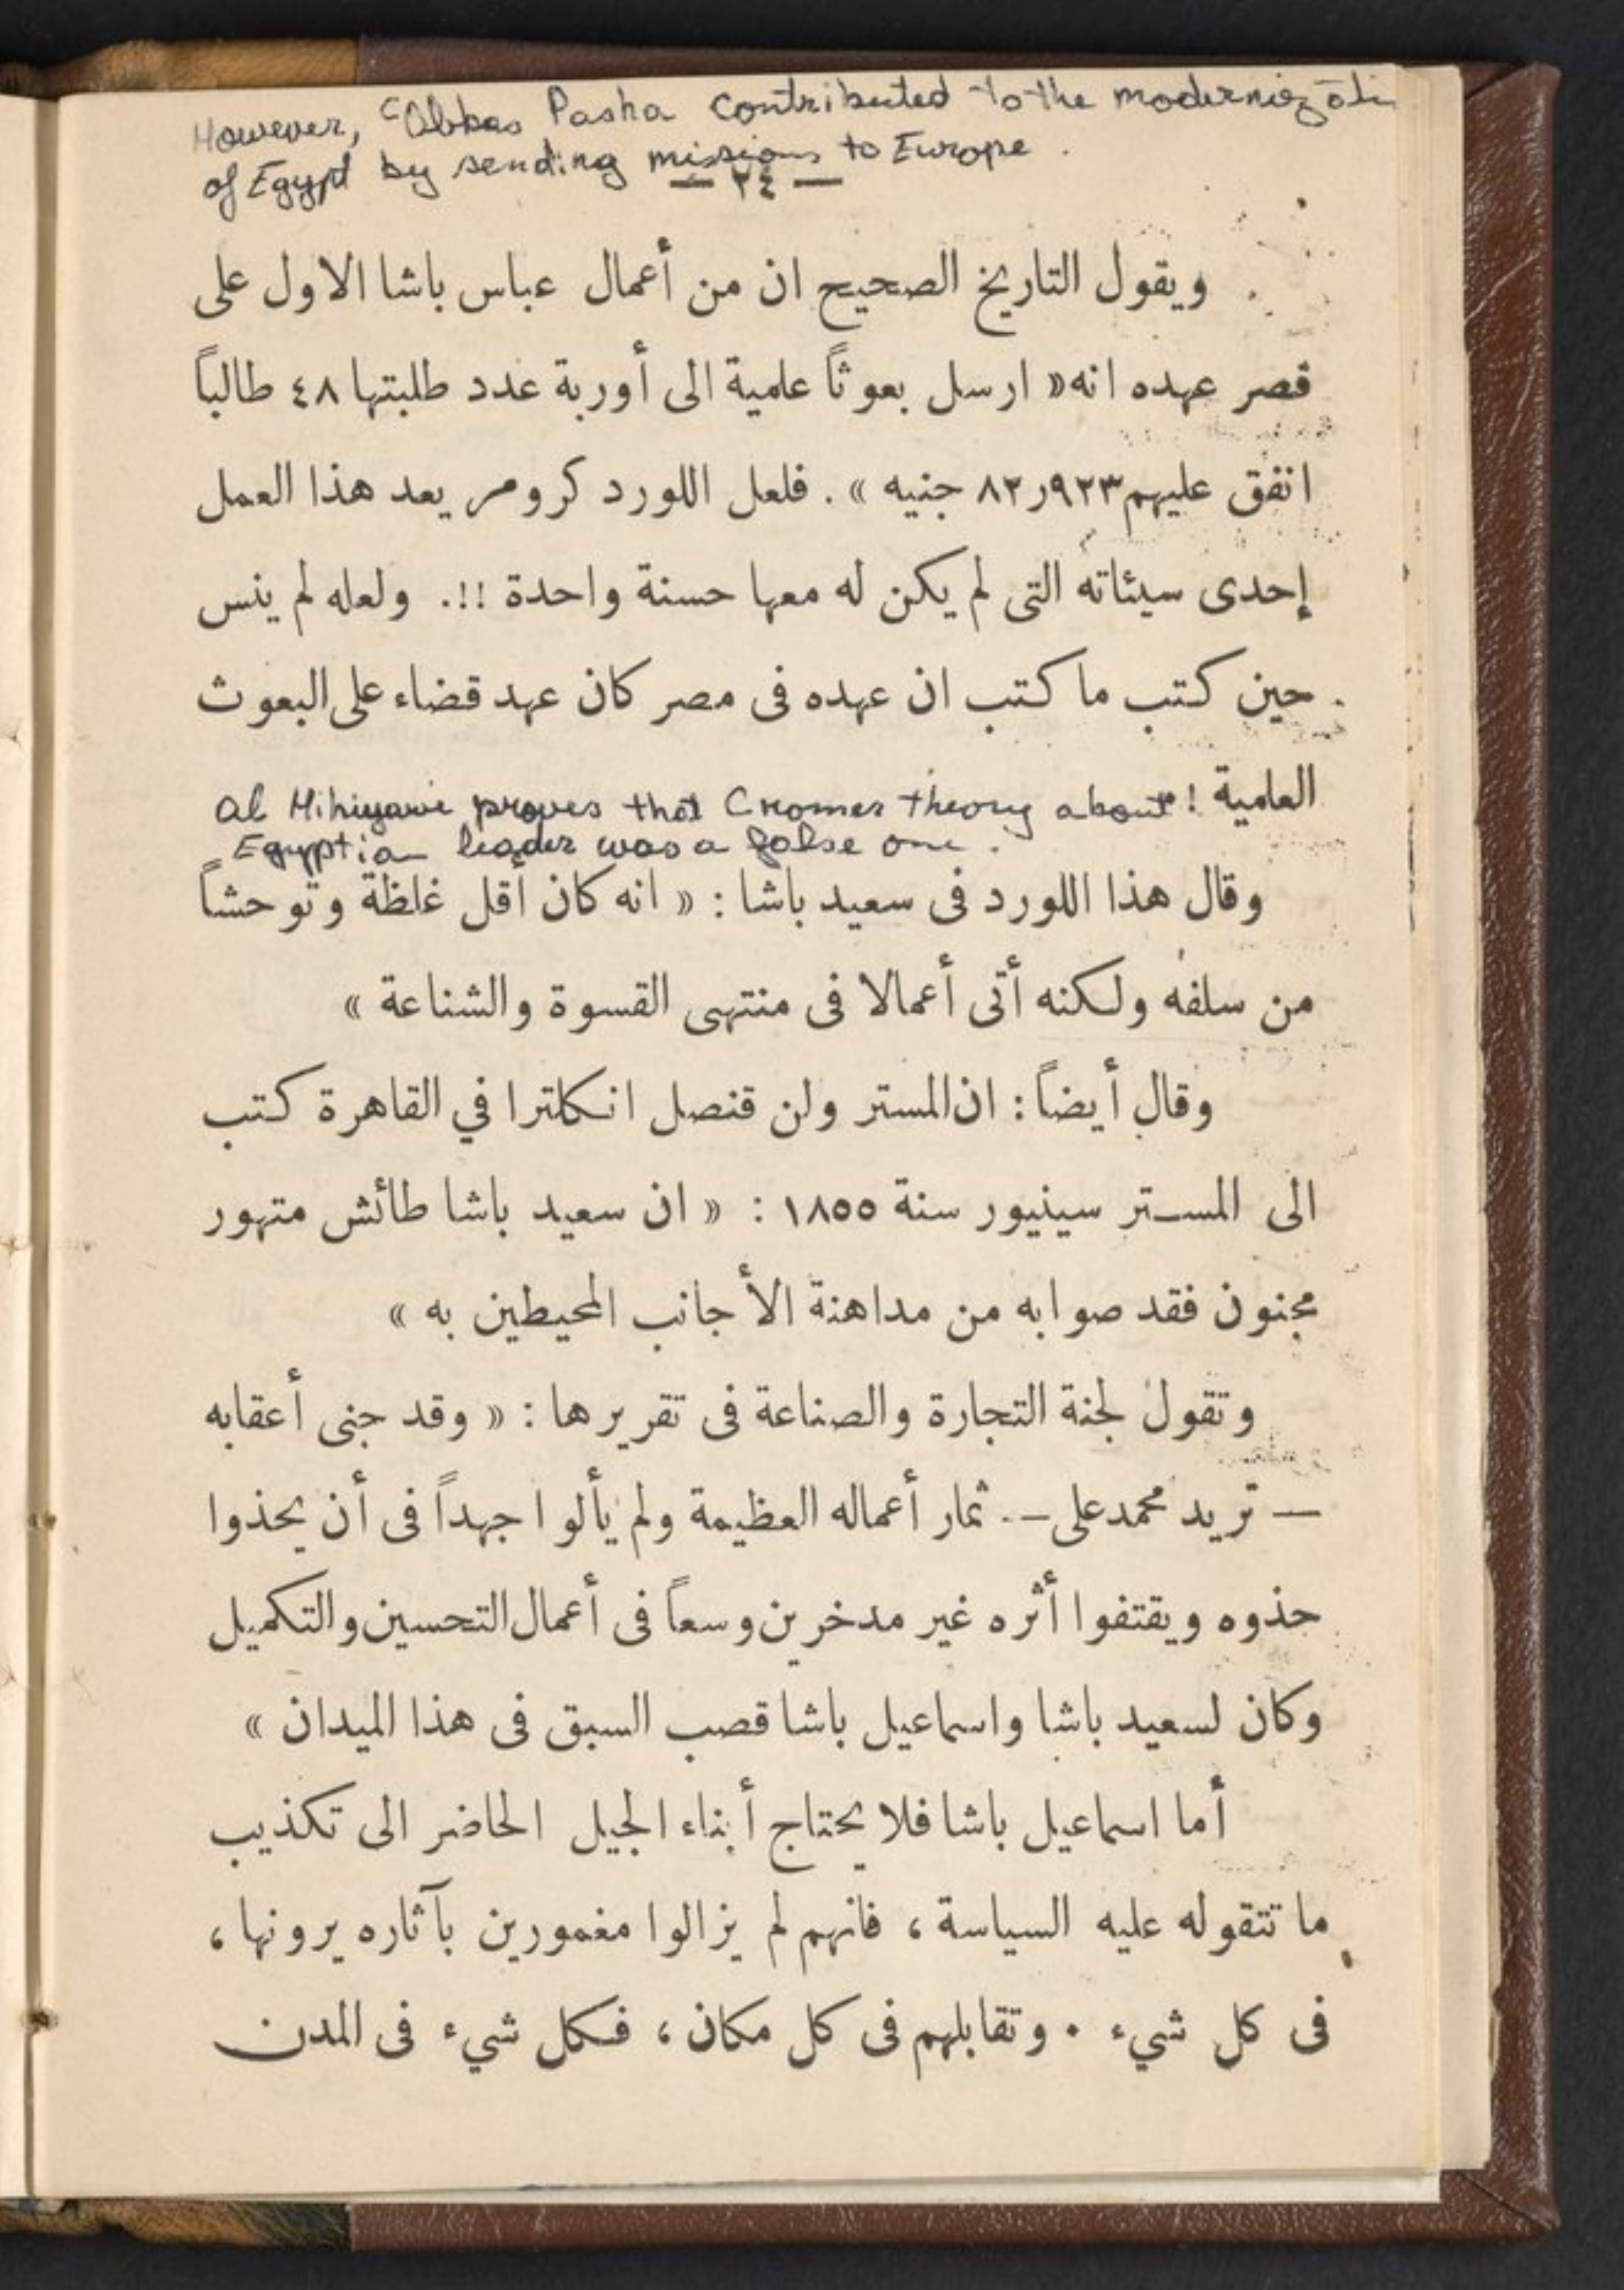 However, ʿAbbas Pasha contributed to the modernization
of Egypt by sending missions to Europe.
— ٢٤ —
ويقول التاريخ الصحيح ان من أعمال عباس باشا الاول على
قصر عهده انه « ارسل بعوثاً علمية الى أوربة عدد طلبتها ٤٨ طالباً
انفق عليهم ٨٢٫٩٢٣ جنيه » . فلعل اللورد كرومر يعد هذا العمل
إحدى سيئاته التى لم يكن له معها حسنة واحدة !!. ولعله لم ينس
حين كتب ما كتب ان عهده فى مصر كان عهد قضاء على البعوث
العلمية !
Al Mihiyawi proves that Cromer theory about
Egyptian leader was a false one.
وقال هذا اللورد فى سعيد باشا : « انه كان أقل غلظة وتوحشاً
من سلفه ولكنه أتى أعمالا فى منتهى القسوة والشناعة »
وقال أيضاً : ان المستر ولن قنصل انكلترا في القاهرة كتب
الى المستر سينيور سنة ١٨٥٥ : « ان سعيد باشا طائش متهور
مجنون فقد صوابه من مداهنة الأجانب المحيطين به »
وتقول لجنة التجارة والصناعة فى تقريرها : « وقد جنى أعقابه
— تريد محمد على — ثمار أعماله العظيمة ولم يألوا جهداً فى أن يحذوا
حذوه ويقتفوا أثره غير مدخرين وسعاً فى أعمال التحسين والتكميل
وكان لسعيد باشا واسماعيل باشا قصب السبق فى هذا الميدان »
أما اسماعيل باشا فلا يحتاج أبناء الجيل الحاضر الى تكذيب
ما تتقوله عليه السياسة ، فانهم لم يزالوا مغمورين بآثاره يرونها ،
فى كل شيء . وتقابلهم فى كل مكان ، فكل شيء فى المدن